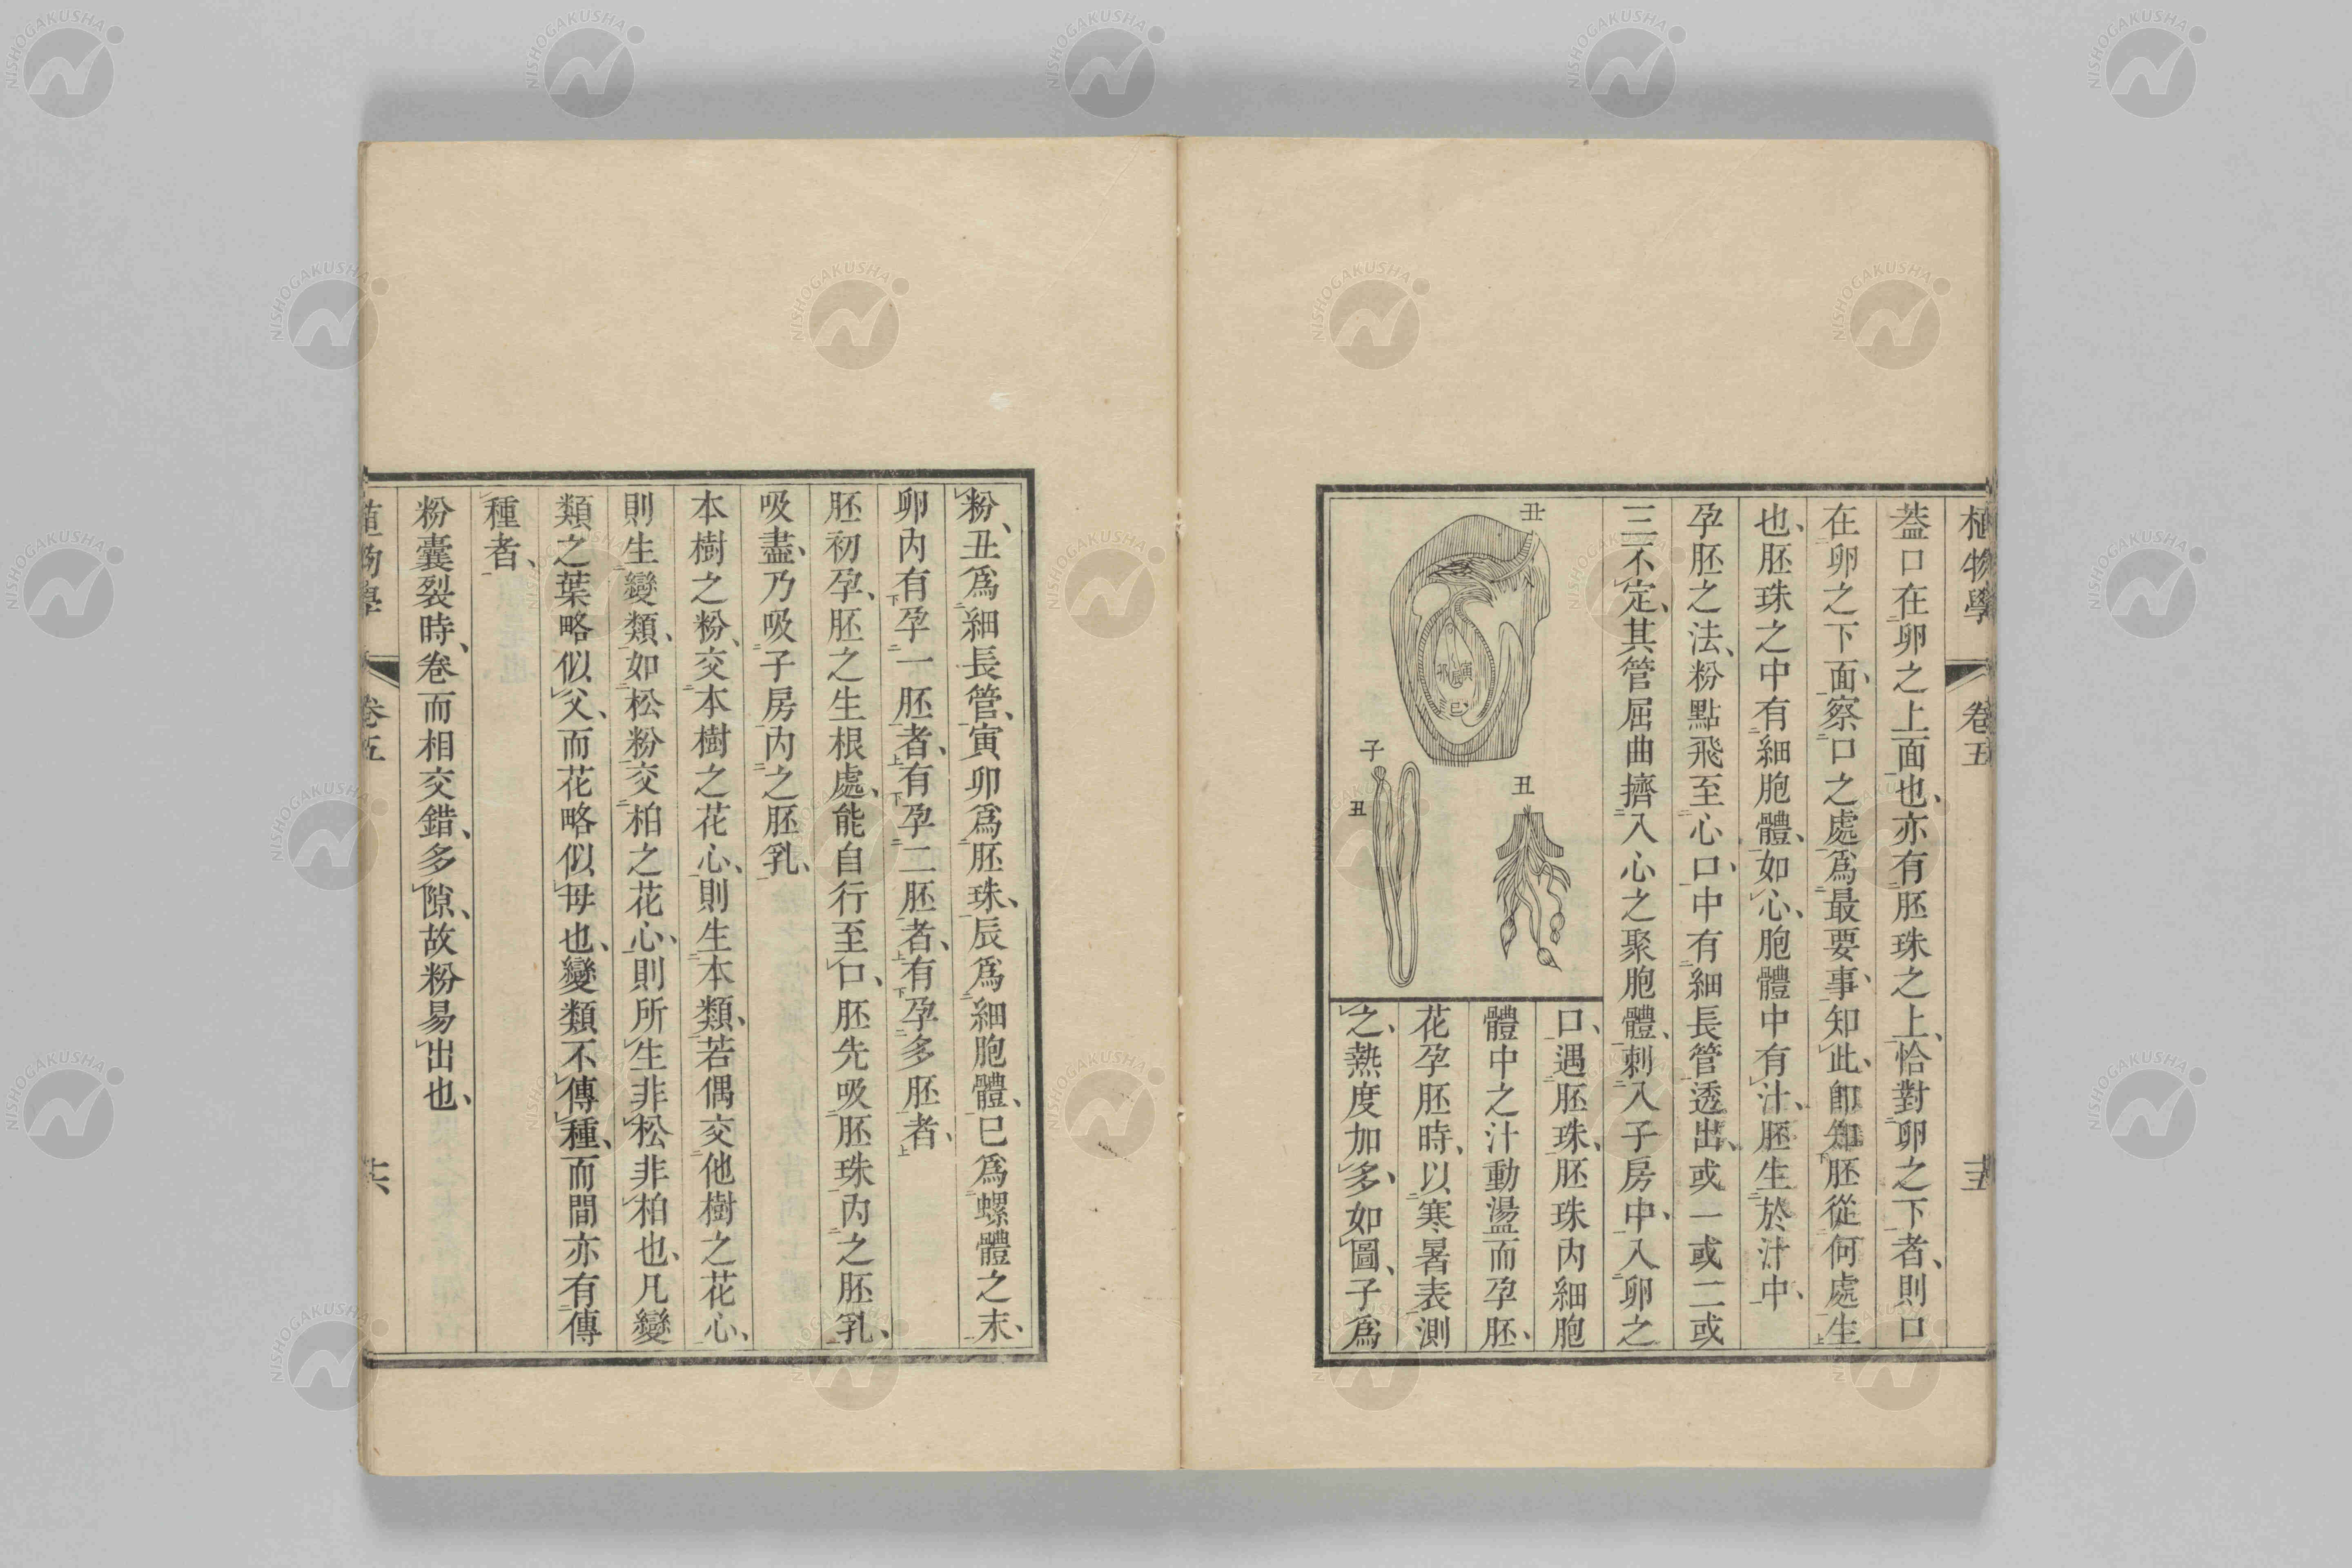 植物學 卷五 十五
葢口在卵之上面也、亦有胚珠之上、恰對卵之下者、則口
在卵之下面、察口之處爲最要事、知此、卽知胚從何處生
也、胚珠之中有細胞體、如心、胞體中有汁、胚生於汁中、
孕胚之法、粉點飛至心口、中有細長管透出、或一或二或
三不定、其管屈曲擠入心之聚胞體、刺入子房中、入卵之
口、遇胚珠、胚珠內細胞
體中之汁動盪而孕胚、
花孕胚時、以寒暑表測
之、熱度加多、如圖、子爲
丑
子
丑
丑
巳
粉、丑爲細長管、寅卯爲胚珠、辰爲細胞體、巳爲螺體之末、
卵內有孕一胚者、有孕二胚者、有孕多胚者、
胚初孕、胚之生根處、能自行至口、胚先吸胚珠內之胚乳、
吸盡、乃吸子房內之胚乳、
本樹之粉、交本樹之花心、則生本類、若偶交他樹之花心、
則生變類、如松粉交柏之花心、則所生非松非柏也、凡變
類之葉略似父、而花略似母也、變類不傳種、而間亦有傳
種者、
粉囊裂時、卷而相交錯、多隙、故粉易出也、
植物學 卷五 十六
NISHOGAKUSHA